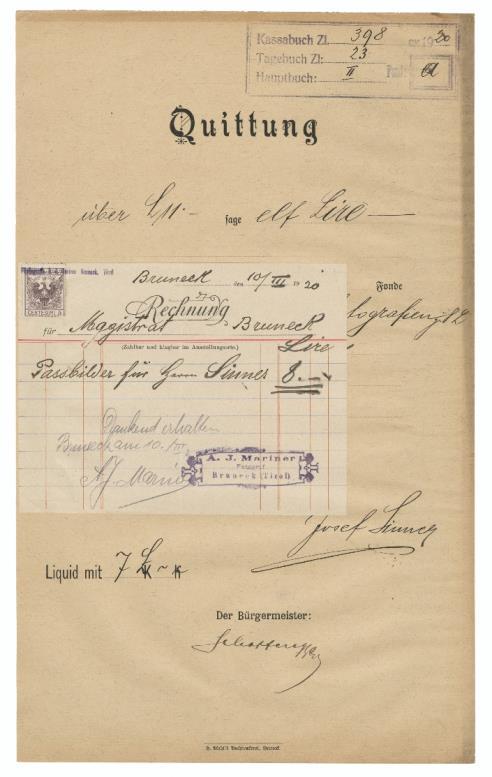 Kassabuch Zl. 398 ex 1920
Tagebuch Zl: 23
Hauptbuch: II
Quittung
über L 11.- sage elf Lire
Fonde
Bruneck den 10/III 1920
Rechnung
für Magistrat Bruneck
(Zahlbar und klagbar im Ausstellungsorte.) Lire
Passbilder für Herrn Sinner 8.-
Dankend erhalten
Bruneck am 10./III
A. J. Mariner
A. J. Mariner
Fotograf
Bruneck (Tirol)
Josef Sinner
Liquid mit 7 L
Der Bürgermeister: